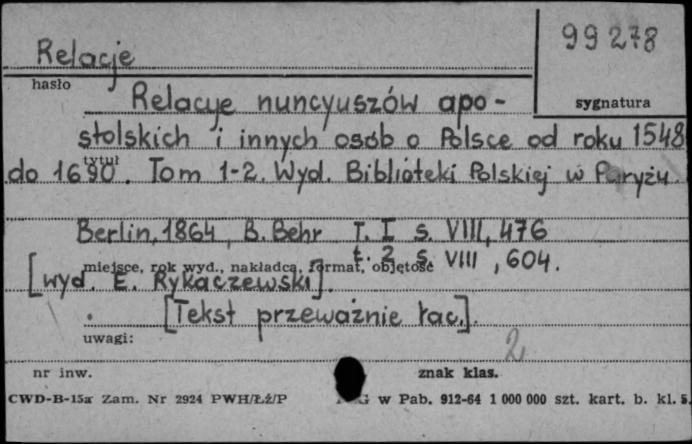 99278
Relacje
hasło
sygnatura
Relacje nuncyuszów apo-
stolskich i innych osób o Polsce od roku 1548
tytuł
do 1690. Tom 1-2. Wyd. Biblioteki Polskiej w Paryżu.
Berlin, 1864, B. Behr T. I s. VIII, 476
miejsce, rok wyd., nakładca, format, objętość
t. 2 s. VIII, 604.
[wyd. E. Rykaczewski].
[Tekst przeważnie łac.].
uwagi:
2
nr inw.
znak klas.
CWD-B-15a Zam. Nr 2924 PWH/Łź/P
G w Pab. 912-64 1 000 000 szt. kart. b. kl. 5.